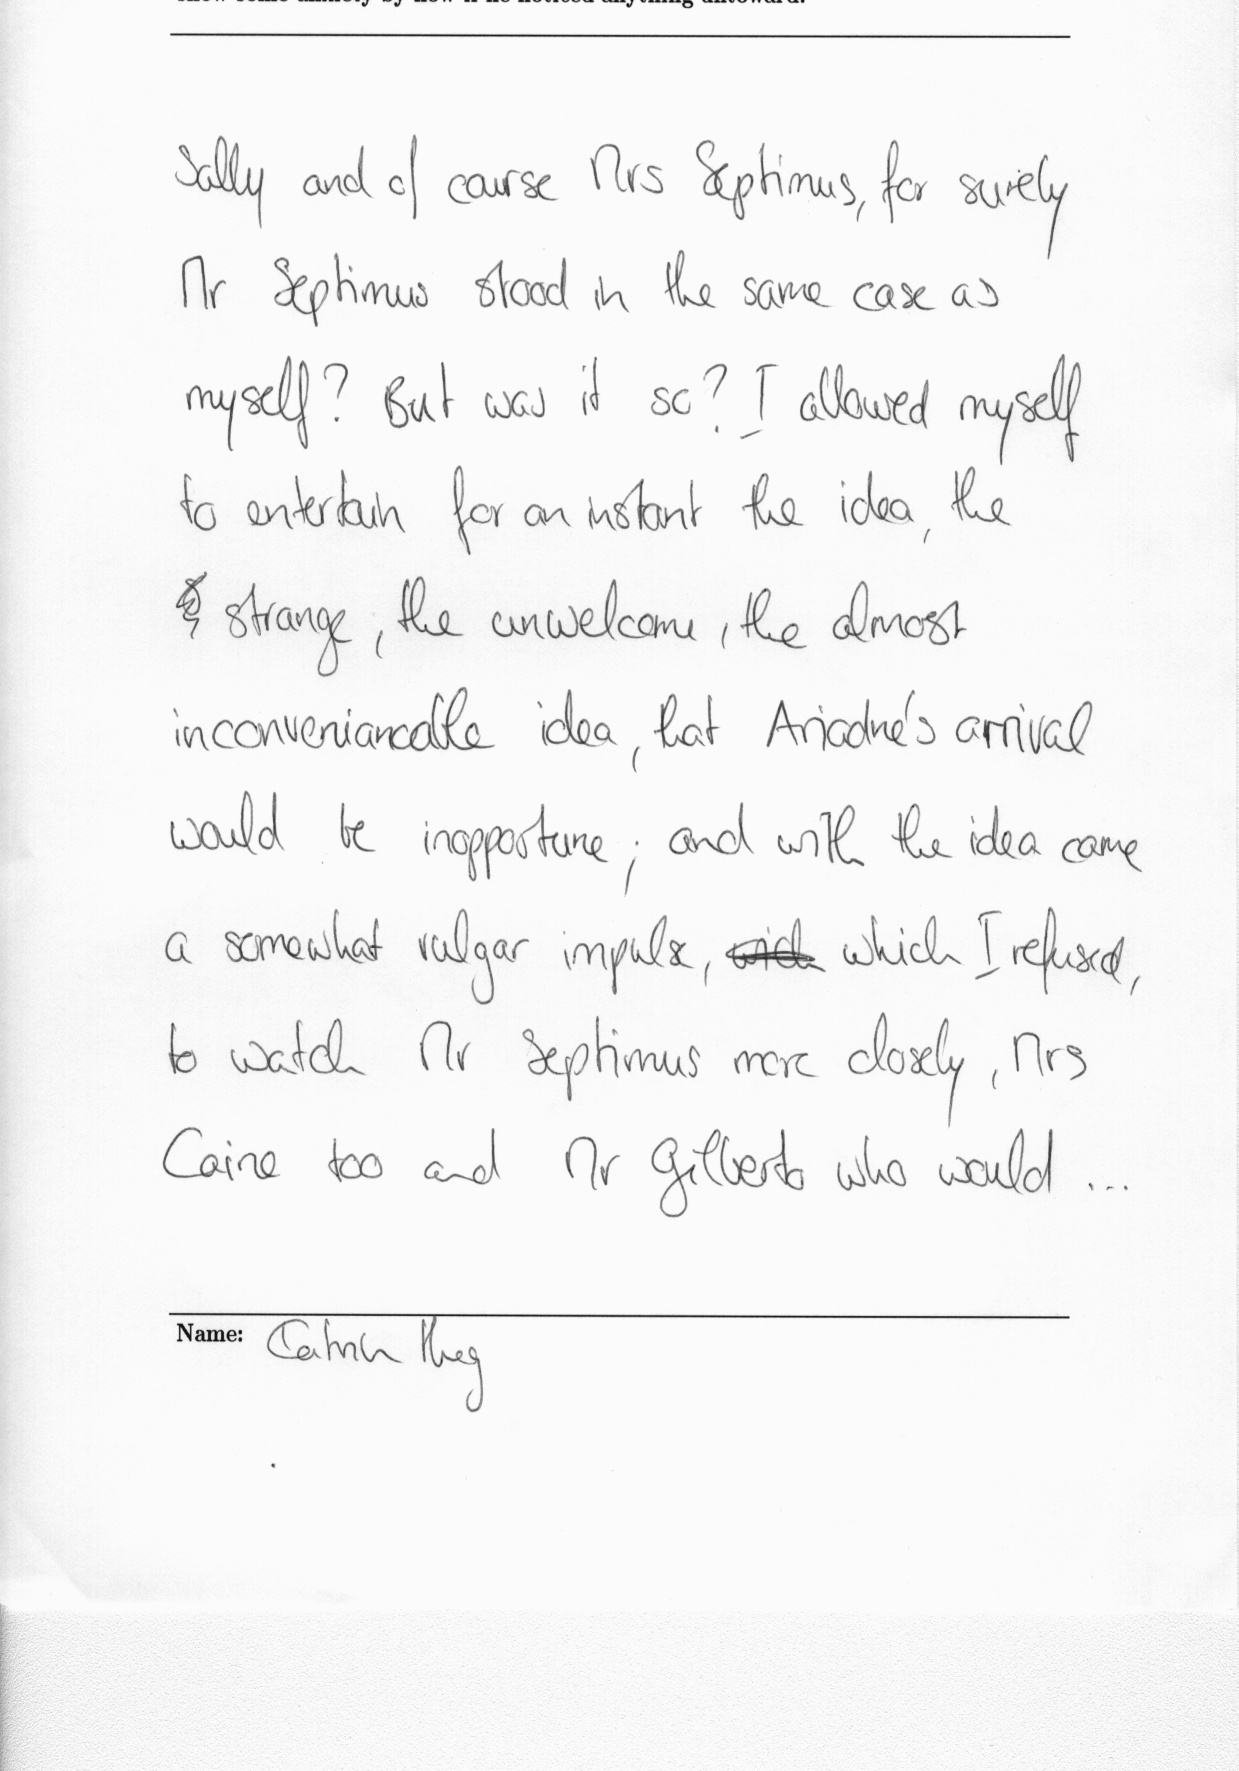 Sally and of course Mrs Septimus, for surely
Mr Septimus stood in the same case as
myself? But was it so? I allowed myself
to entertain for an instant the idea, the
strange, the unwelcome, the almost
inconveniancable idea, that Ariadne's arrival
would be inopportune; and with the idea came
a somewhat vulgar impulse, which I refused,
to watch Mr Septimus more closely, Mrs
Caine too and Mr Gilberto who would ...
Name: